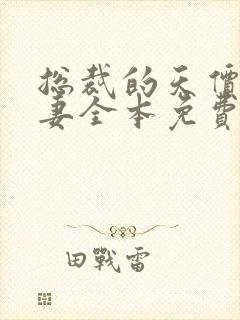 总裁的天價
妻全本免費
田戰雷